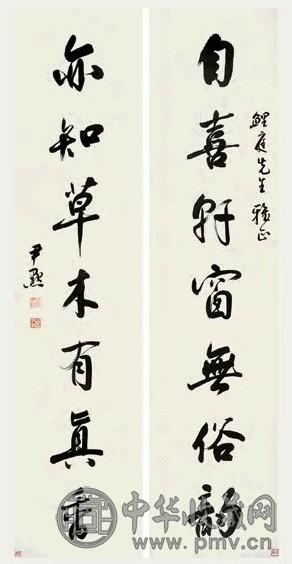 鯉庭先生雅正
自喜軒窗無俗韻
亦知草木有真香
尹默
中华收藏网
www.pmv.cn